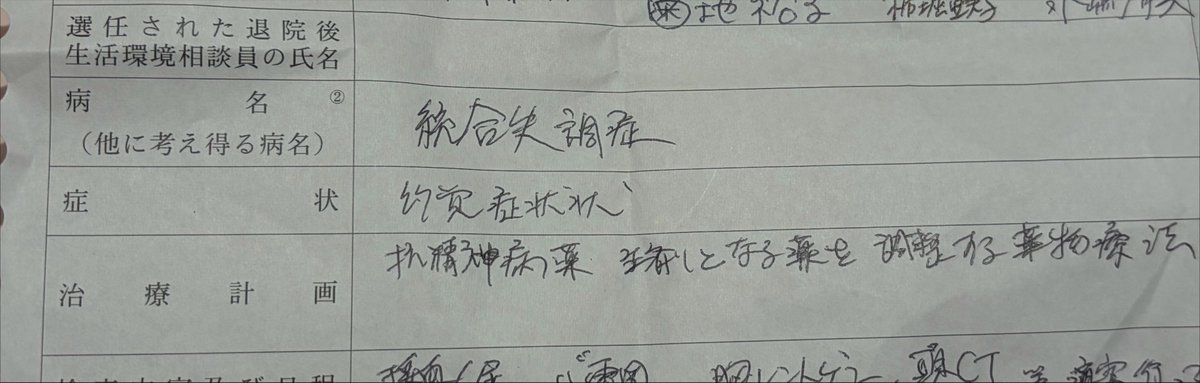 選任された退院後
生活環境相談員の氏名
病名②
(他に考え得る病名)
統合失調症
症状
幻覚症状
治療計画
抗精神病薬 となる薬を調整する薬物療法
採血/尿 心電図 胸レントゲン、頭CT